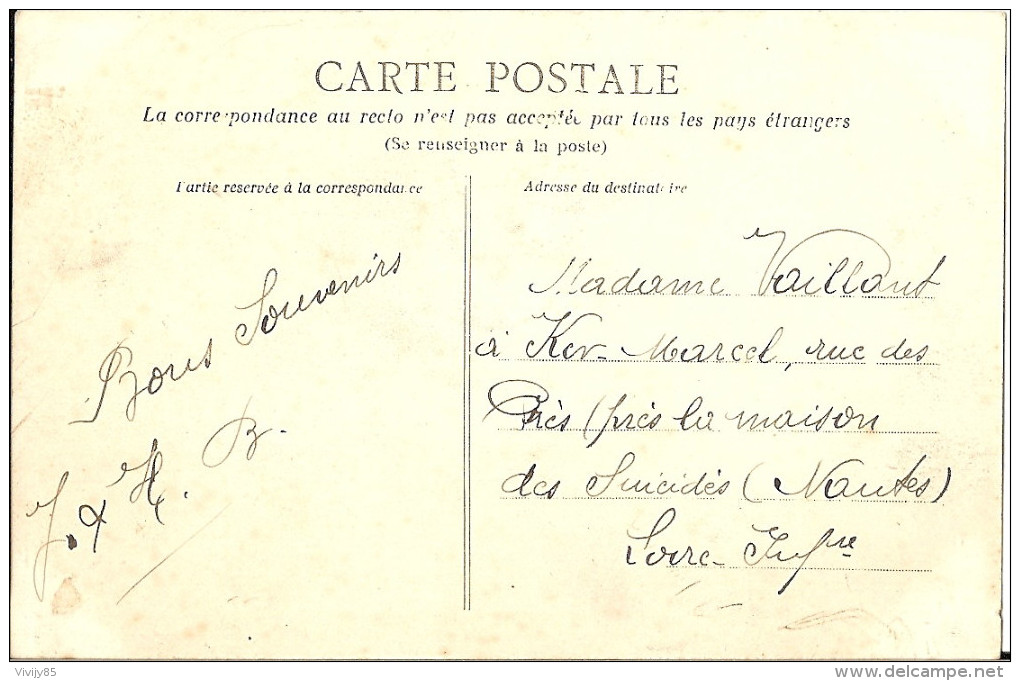 CARTE POSTALE
La correspondance au recto n'est pas acceptée par tous les pays étrangers
(Se renseigner à la poste)
Partie reservée à la correspondance
Adresse du destinataire
Bons Souvenirs
J. & H. B.
Madame Vaillant
à Ker-Marcel, rue des
Près (près la maison
des Suicidés (Nantes)
Loire-Infre
Vivijy85
www.delcampe.net